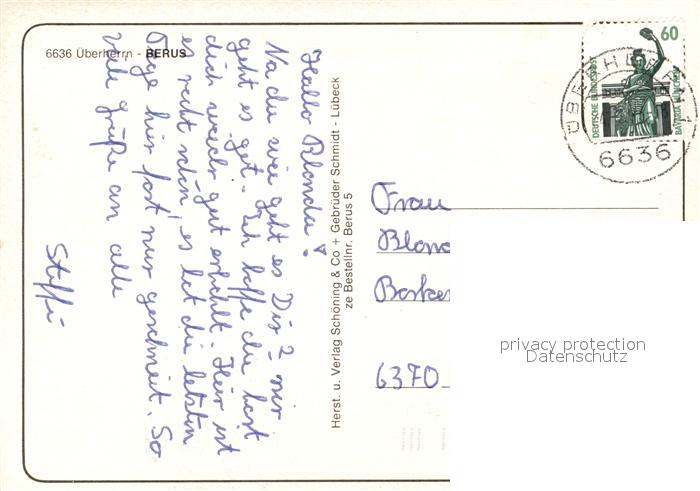 6636 Überherrn - BERUS
Hallo Blonda!
Na du wie geht es Dir? mir
geht es gut. Ich hoffe du hast
dich weider gut erhohlt. Hier ist
es recht schön, es hat die letzten
Tage hir fast nur geschneit. So
viele grüße an alle
Steffi
Herst. u. Verlag Schöning & Co + Gebrüder Schmidt - Lübeck
ze Bestellnr. Berus 5
60
DEUTSCHE BUNDESPOST
BAVARIA MÜNCHEN
ÜBERHERRN 1
6636
Frau
Blond
Barke
6370
privacy protection
Datenschutz